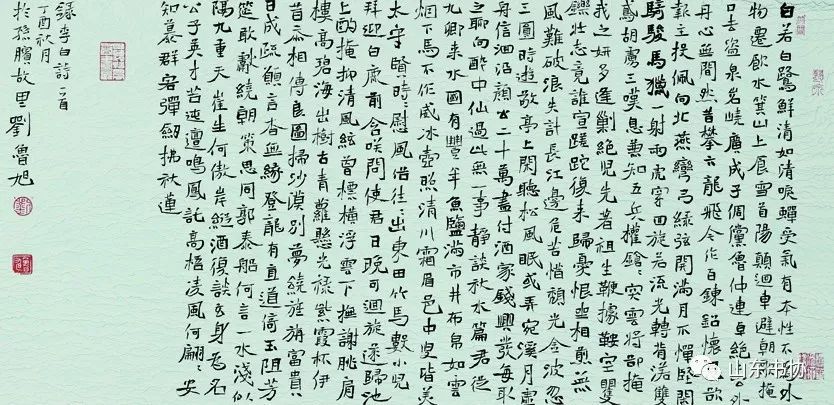 白若白鷺鮮清如清唳蟬受氣有本性不為外
物遷飲水箕山上食雪首陽顛迴車避朝歌掩
口去盜泉岧嶢廣成子倜儻魯仲連卓絕二公外
丹心無間然昔攀六龍飛今作百鍊鉛懷恩欲
報主投佩向北燕彎弓綠弦開滿月不憚堅閑
騎駿馬獵一射兩虎穿回旋若流光轉背落雙
鳶胡虜三嘆息兼知五兵權鎗鎗突雲將卻掩
我之妍多逢剿絕兒先著祖生鞭據鞍空矍
鑠壯志竟誰宣蹉跎復來歸憂恨坐相煎無
風難破浪失計長江邊危苦惜頹光金波忽
三圓時遊敬亭上閑聽松風眠或弄宛溪月虛
舟信洄沿顏公二十萬盡付酒家錢興發每取
之聊向醉中仙過此無一事靜談秋水篇君從
九卿來水國有豐年魚鹽滿市井布帛如雲
烟下馬不作威冰壺照清川霜眉邑中叟皆美
太守賢時時慰風俗往往出東田竹馬數小兒
拜迎白鹿前含笑問使君日晚可迴旋遂歸池
上酌掩抑清風絃曾標橫浮雲下撫謝朓肩
樓高碧海出樹古青蘿懸光祿紫霞杯伊
昔忝相傳良圖掃沙漠別夢繞旌旃富貴
日成疏願言杳無緣登龍有直道倚玉阻芳
筵敢獻繞朝策思同郭泰船何言一水淺似
隔九重天崔生何傲岸縱酒復談玄身為名
公子英才苦迍邅鳴鳳託高梧凌風何翩翩安
知慕群客彈劍拂秋蓮
錄李白詩一首
丁酉秋月
於孫臏故里劉魯旭
山东书协